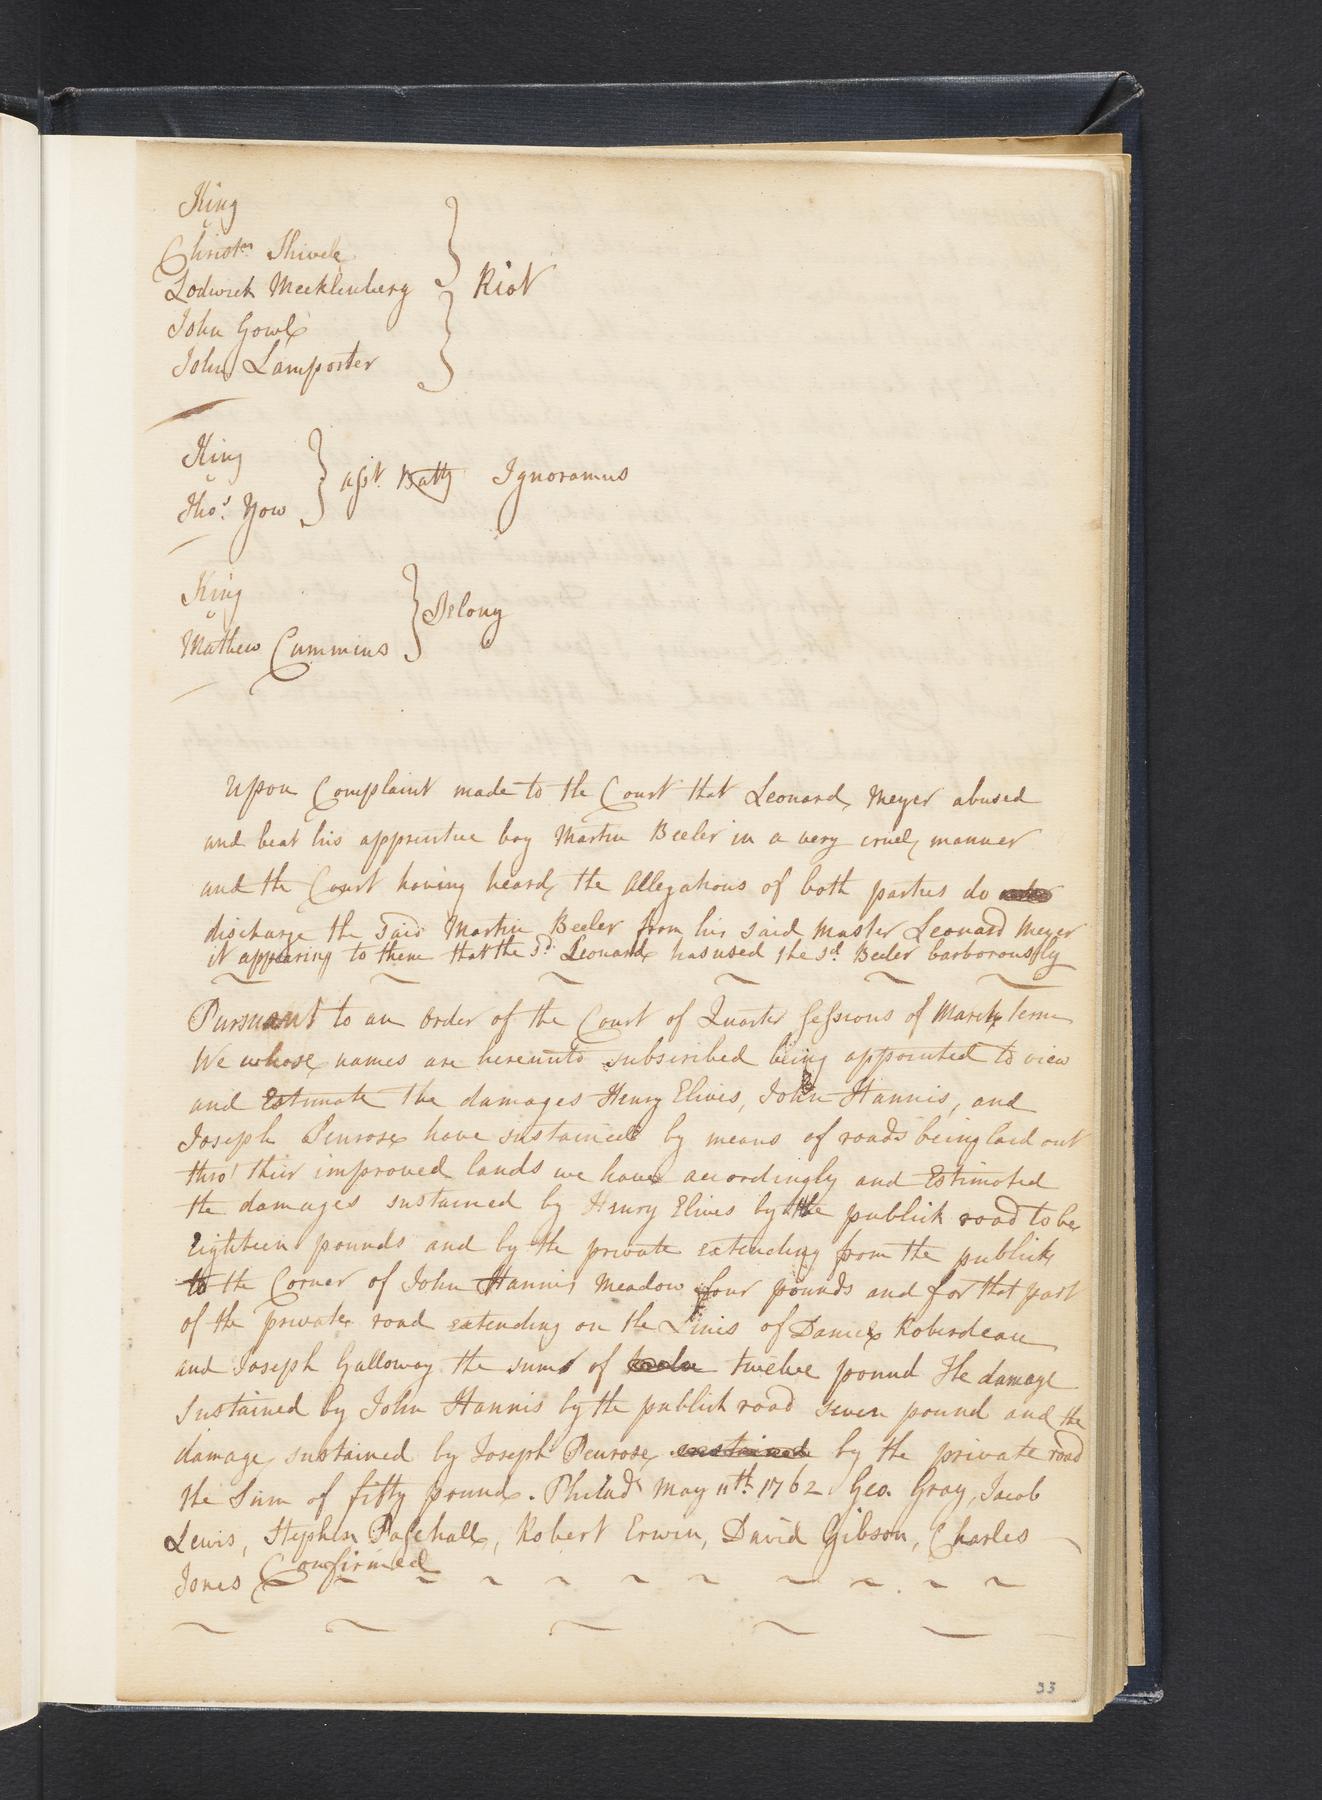 King
v
Christr. Shively
Lodwick Mecklenberg } Riot
John Gowl
John Lamporter
King
v } Asst. Batty Ignoramus
Thos. Yow
King
v } Felony
Mathew Cummins
Upon Complaint made to the Court that Leonard Meyer abused
and beat his apprentice boy Martin Beeler in a very cruel manner
and the Court having heard the Allegations of both parties do
discharge the said Martin Beeler from his said Master Leonard Meyer
it appearing to them that the sd. Leonard has used the sd. Beeler barborously
Pursuant to an Order of the Court of Quarter Sessions of March term
We whose names are hereunto subscribed being appointed to view
and Estimate the damages Henry Elives, John Hannis, and
Joseph Penrose have sustained by means of roads being laid out
thro' their improved lands we have accordingly and Estimated
the damages sustained by Henry Elives by the publick road to be
Eighteen pounds and by the private extending from the publick
to the Corner of John Hannis Meadow four pounds and for that part
of the private road extending on the Lines of Daniel Roberdeau
and Joseph Galloway the sum of twelve pound The damage
sustained by John Hannis by the publick road seven pound and the
damage sustained by Joseph Penrose sustained by the private road
the Sum of fifty pound. Philada May 11th. 1762. Geo. Gray, Jacob
Lewis, Stephen Paschall, Robert Erwin, David Gibson, Charles
Jones Confirmed
33